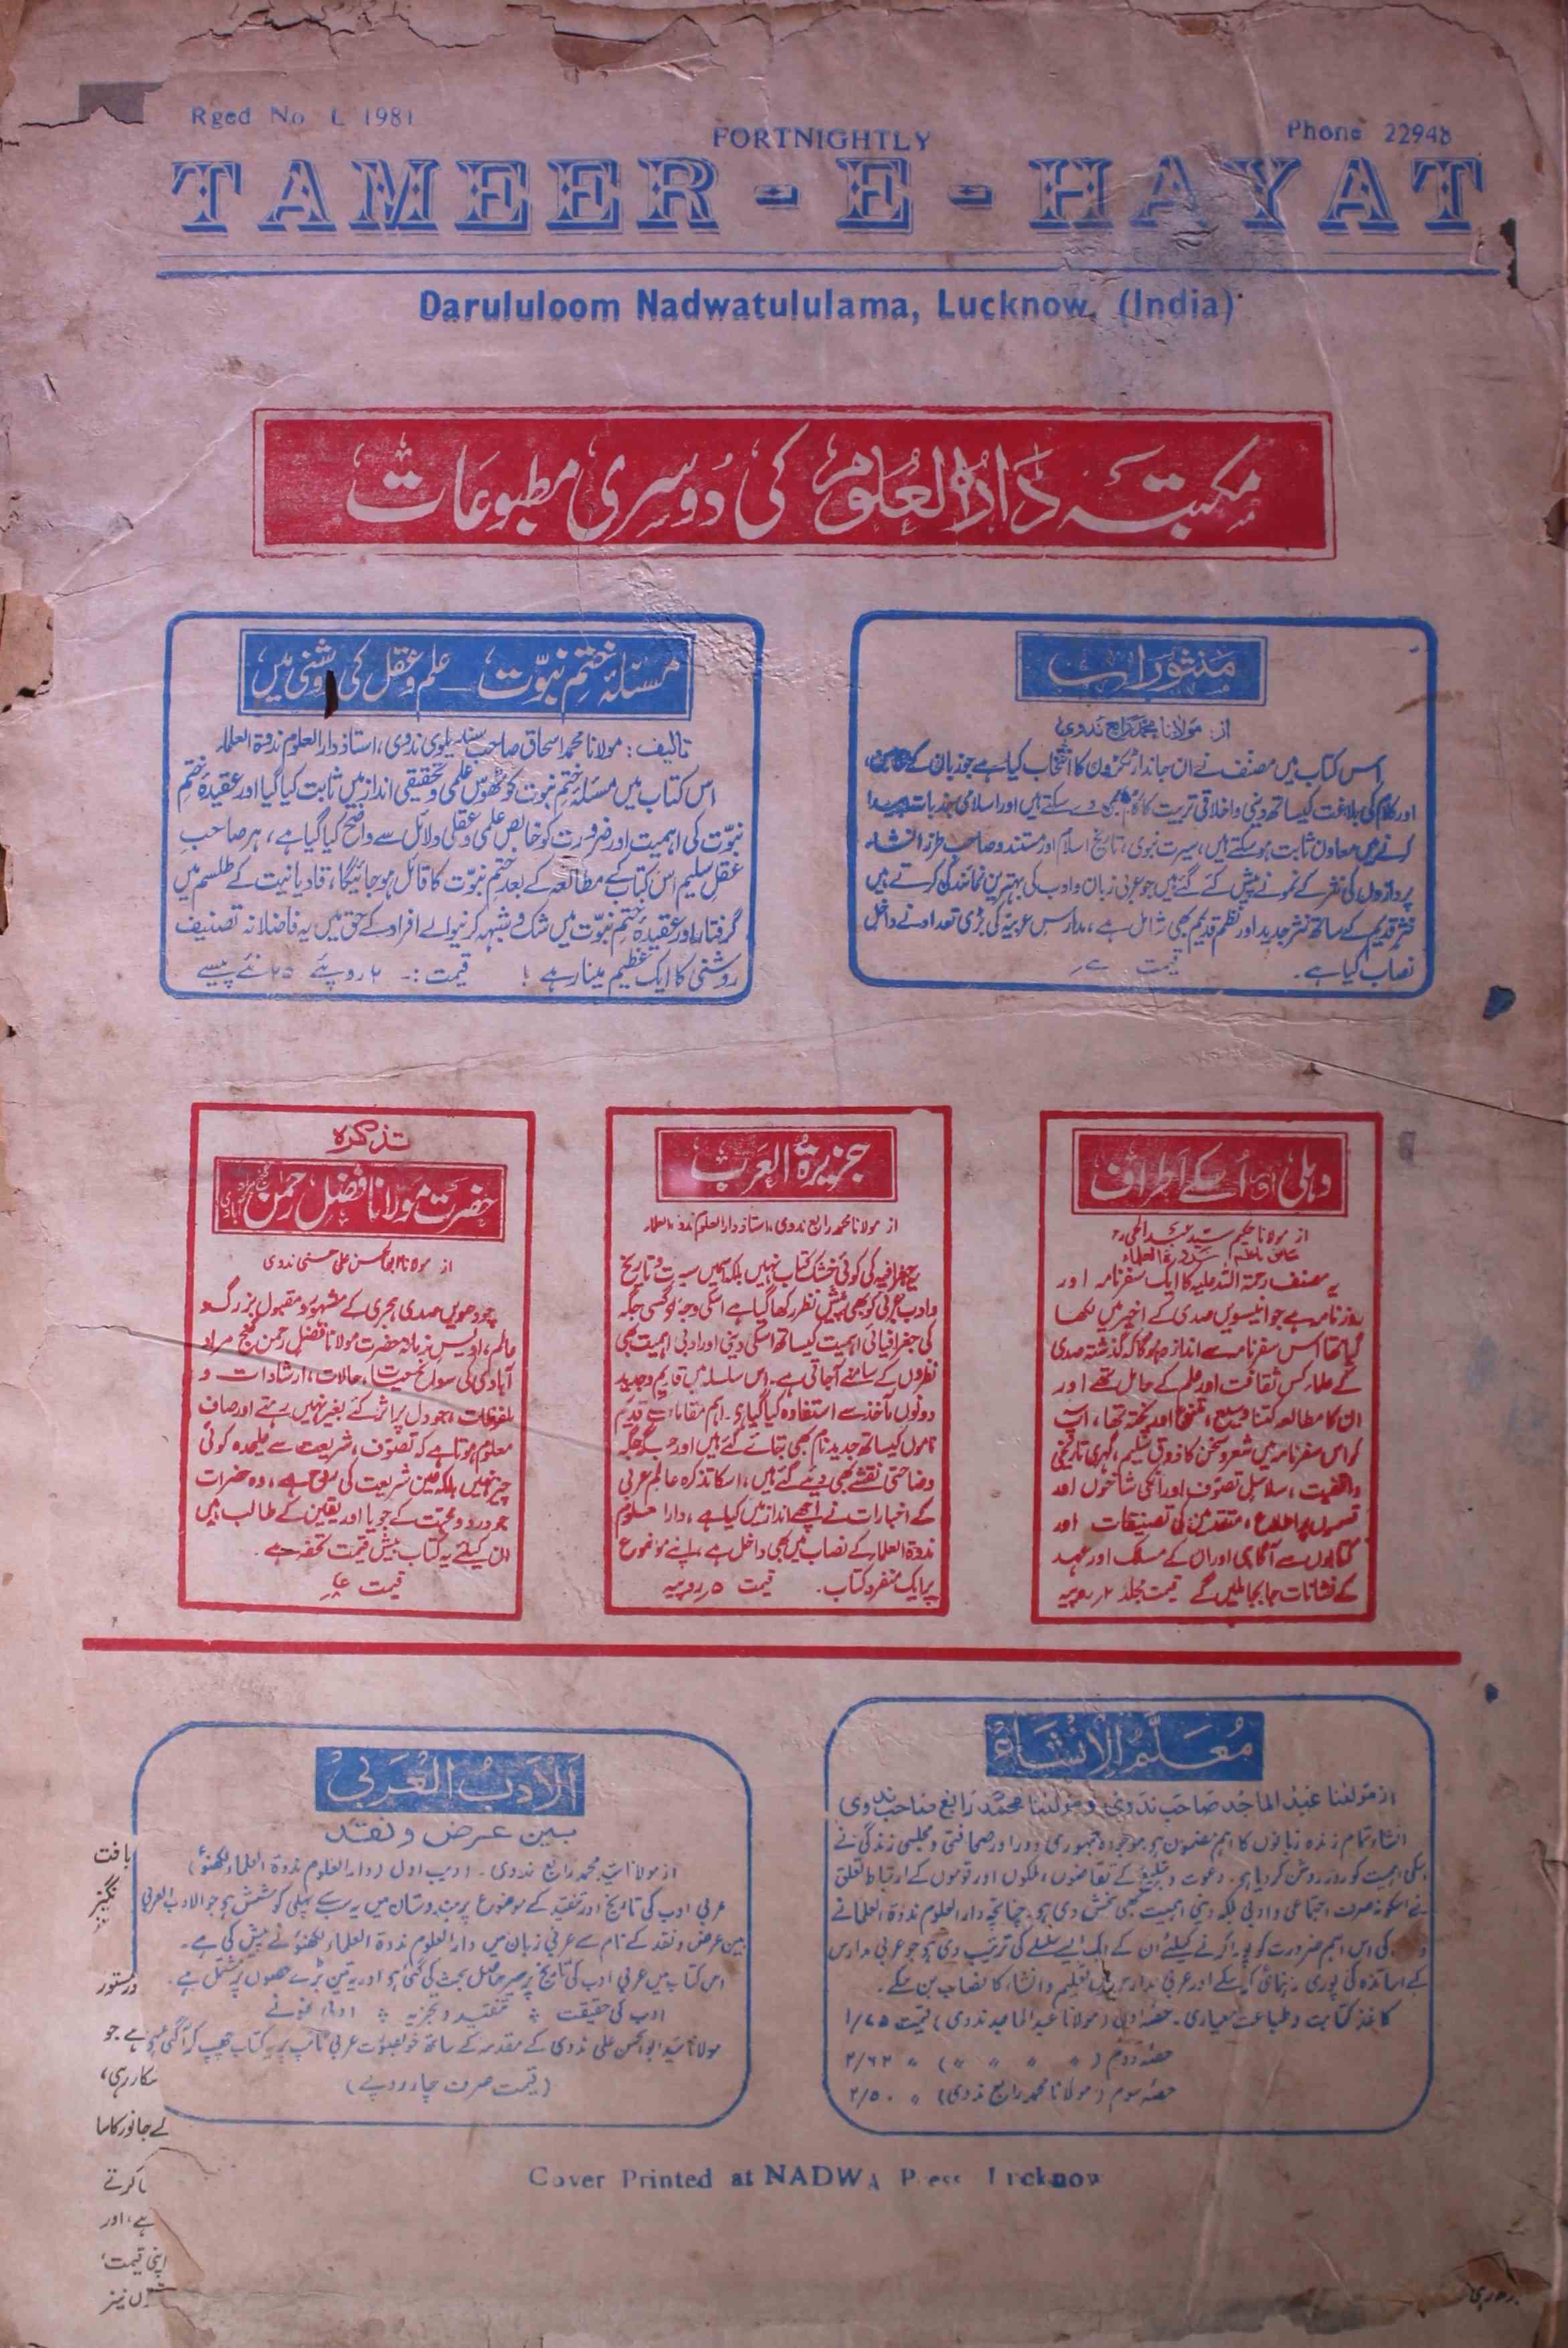 Rged No L 1981
FORTNIGHTLY
Phone 22948
TAMEER - E - HAYAT
Darululoom Nadwatululama, Lucknow, (India)
مکتبہ دارالعلوم کی دوسری مطبوعات
منثورات
از: مولانا محمد رابع ندوی
اس کتاب میں مصنف نے ان جاندار ٹکڑوں کا انتخاب کیا ہے جو زبان کے
اور کلام کی بلاغت کیساتھ دینی و اخلاقی تربیت کا کام بھی دے سکتے ہیں اور اسلامی جذبات پیدا
کرنے میں معاون ثابت ہو سکتے ہیں، سیرت نبوی، تاریخ اسلام اور مستند و صاحب طرز انشاء
پردازوں کی نثر کے نمونے پیش کئے گئے ہیں جو عربی زبان و ادب کی بہترین نمائندگی کرتے ہیں
نثر قدیم کے ساتھ نثر جدید اور نظم قدیم بھی شامل ہے، مدارس عربیہ کی بڑی تعداد نے داخل
نصاب کیا ہے۔ قیمت
مسئلۂ ختم نبوّت ـ علم و عقل کی روشنی میں
تالیف: مولانا محمد اسحاق صاحب سندیلوی ندوی، استاذ دارالعلوم ندوۃ العلماء
اس کتاب میں مسئلہ ختم نبوت کو ٹھوس علمی و تحقیقی انداز میں ثابت کیا گیا اور عقیدۂ ختم
نبوّت کی اہمیت اور ضرورت کو خالص علمی و عقلی دلائل سے واضح کیا گیا ہے، ہر صاحب
عقل سلیم اس کتاب کے مطالعہ کے بعد ختم نبوّت کا قائل ہو جائیگا، قادیانیت کے طلسم میں
گرفتار اور عقیدۂ ختم نبوّت میں شک و شبہہ کرنیوالے افراد کے حق میں یہ فاضلانہ تصنیف
روشنی کا ایک عظیم مینار ہے ! قیمت :- ۲ روپئے ۲۵ نئے پیسے
دہلی اور اسکے اطراف
از مولانا حکیم سید عبدالحی
یہ مصنف رحمۃ اللہ علیہ کا ایک سفرنامہ اور
روزنامہ ہے جو انیسویں صدی کے اخیر میں لکھا
گیا تھا اس سفرنامہ سے اندازہ ہوگا کہ گذشتہ صدی
کے علماء کس ثقافت اور علم کے حامل تھے اور
ان کا مطالعہ کتنا وسیع، متنوع اور پختہ تھا، آپ
کو اس سفرنامہ میں شعر و سخن کا ذوق سلیم، گہری تاریخی
واقفیت، سلاسل تصوف اور انکی شاخوں اور
قسموں پر اطلاع، متقدمین کی تصنیفات اور
کتابوں سے آگاہی اور ان کے مسلک اور عہد
کے نشانات جا بجا ملیں گے قیمت مجلد ۲ روپیہ
جزیرۃ العرب
از مولانا محمد رابع ندوی، استاذ دارالعلوم ندوۃ العلماء
یہ جغرافیہ کی کوئی خشک کتاب نہیں بلکہ اسمیں سیرت و تاریخ
و ادب عربی کو بھی پیش نظر رکھا گیا ہے اسکی وجہ سے کسی جگہ
کی جغرافیائی اہمیت کیساتھ اسکی دینی اور ادبی اہمیت بھی
نظروں کے سامنے آجاتی ہے۔ اس سلسلہ میں قدیم و جدید
دونوں مآخذ سے استفادہ کیا گیا ہے۔ اہم مقامات کے قدیم
ناموں کیساتھ جدید نام بھی بتائے گئے ہیں اور جگہ جگہ
وضاحتی نقشے بھی دیئے گئے ہیں، اسکا تذکرہ عالم عربی
کے اخبارات نے اچھے انداز میں کیا ہے، دارالعلوم
ندوۃ العلماء کے نصاب میں بھی داخل ہے، اپنے موضوع
پر ایک منفرد کتاب۔ قیمت ۵ روپیہ
تذکرہ
حضرت مولانا فضل رحمن گنج مرادآبادی
از مولانا ابوالحسن علی حسنی ندوی
چودھویں صدی ہجری کے مشہور و مقبول بزرگ و
عالم، اویس زمانہ حضرت مولانا فضل رحمن گنج مراد
آبادی کی سوانح حیات، حالات، ارشادات و
ملفوظات، جو دل پر اثر کئے بغیر نہیں رہتے اور صاف
معلوم ہوتا ہے کہ تصوّف، شریعت سے علیحدہ کوئی
چیز نہیں بلکہ عین شریعت کی ہے، وہ حضرات
جو درد و محبت کے جویا اور یقین کے طالب ہیں
ان کیلئے یہ کتاب بیش قیمت تحفہ ہے۔
قیمت
معلّم الإنشاء
از مولانا عبد الماجد صاحب ندوی و مولانا محمد رابع صاحب ندوی
انشاء تمام زندہ زبانوں کا اہم مضمون ہے موجودہ جمہوری دور اور صحافتی و مجلسی زندگی نے
اسکی اہمیت کو روز روشن کر دیا ہے۔ دعوت و تبلیغ کے تقاضوں، ملکوں اور قوموں کے ارتباط و تعلق
نے اسکو نہ صرف اجتماعی و ادبی بلکہ دینی اہمیت بھی بخش دی ہے۔ چنانچہ دارالعلوم ندوۃ العلماء نے
کی اس اہم ضرورت کو پورا کرنے کیلئے ان کے ایک ایسے سلسلے کی ترتیب دی ہے جو عربی مدارس
کے اساتذہ کی پوری رہنمائی کر سکے اور عربی مدارس میں تعلیم و انشاء کا نصاب بن سکے۔
کاغذ کتابت و طباعت معیاری۔ حصّہ اول (مولانا عبدالماجد ندوی) قیمت ۱/۷۵
حصّہ دوم ( " " " ) " ۲/۶۲
حصّہ سوم (مولانا محمد رابع ندوی) " ۲/۵۰
الأدب العربي
بین عرض و نقد
از مولانا سید محمد رابع ندوی۔ ادیب اول (دارالعلوم ندوۃ العلماء لکھنؤ)
عربی ادب کی تاریخ اور تنقید کے موضوع پر ہندوستان میں یہ سب سے پہلی کوشش ہے جو الادب العربی
بین عرض و نقد کے نام سے عربی زبان میں دارالعلوم ندوۃ العلماء لکھنؤ نے پیش کی ہے۔
اس کتاب میں عربی ادب کی تاریخ پر سیر حاصل بحث کی گئی ہے اور یہ تین بڑے حصوں پر مشتمل ہے۔
ادب کی حقیقت ؞ تنقید و تجزیہ ؞ ادبی نمونے
مولانا سید ابوالحسن علی ندوی کے مقدمہ کے ساتھ خوبصورت عربی ٹائپ پر یہ کتاب چھپ کر آگئی ہے
(قیمت صرف چار روپے)
یافت
انگیز
دستور
ہے جو
سکار رہی،
لے جانور کا سا
کرتے
ہے، اور
اپنی قیمت،
Cover Printed at NADWA Press Lucknow